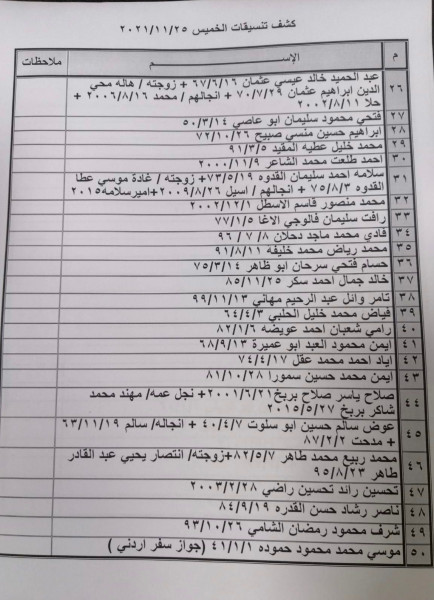 كشف تنسيقات الخميس ٢٠٢١/١١/٢٥
م الإســـــم ملاحظات
٢٦ عبد الحميد خالد عيسي عثمان ٦٧/٦/١٦ + زوجته / هاله محي
الدين ابراهيم عثمان ٧٠/٧/٢٩ + انجالهم / محمد ٢٠٠٦/٨/١٦ +
حلا ٢٠٠٢/٨/١١
٢٧ فتحي محمود سليمان ابو عاصي ٥٠/٣/١٤
٢٨ ابراهيم حسين منسي صبيح ٧٢/١٠/٢٦
٢٩ محمد خليل عطيه المقيد ٩١/٣/٥
٣٠ احمد طلعت محمد الشاعر ٢٠٠٠/١١/٩
٣١ سلامه احمد سليمان القدوه ٧٣/٥/١٩+ زوجته / غادة موسي عطا
القدوه ٧٥/٨/٣ + انجالهم / اسيل ٢٠٠٩/٨/٢٦+اميرسلامه٢٠١٥
٣٢ محمد منصور قاسم الاسطل ٢٠٠٢/١٢/١
٣٣ رافت سليمان فالوجي الاغا ٧٧/١/٥
٣٤ فادي محمد ماجد دحلان ٨ / ٧ / ٩٦
٣٥ محمد رياض محمد خليفه ٩١/٨/١١
٣٦ حسام فتحي سرحان ابو ظاهر ٧٥/٣/١٤
٣٧ خالد جمال احمد سكر ٨٥/١١/٢٥
٣٨ تامر وائل عبد الرحيم مهاني ٩٩/١١/١٣
٣٩ فياض محمد خليل الحلبي ٦٤/٤/٣
٤٠ رامي شعبان احمد عويضه ٨٢/١/٦
٤١ ايمن محمود العبد ابو عميرة ٦٨/٩/١٣
٤٢ اياد احمد محمد عقل ٧٤/٤/١٧
٤٣ ايمن محمد حسين سمورا ٨١/١٠/٢٨
٤٤ صلاح ياسر صلاح بربخ ٢٠٠١/٦/٢١+ نجل عمه/ مهند محمد
شاكر بربخ ٢٠١٥/٥/٢٧
٤٥ عوض سالم حسين ابو سلوت ٤٠/٤/٧ + انجاله/ سالم ٦٣/١١/١٩
+ مدحت ٨٧/٢/٢
٤٦ محمد ربيع محمد طاهر ٨٢/٥/٧+زوجته/ انتصار يحيي عبد القادر
طاهر ٩٥/٨/٢٣
٤٧ تحسين رائد تحسين راضي ٢٠٠٣/٢/٢٨
٤٨ ناصر رشاد حسن القدره ٨٤/٩/١٩
٤٩ شرف محمود رمضان الشامي ٩٣/١٠/٢٦
٥٠ موسي محمد محمود حموده ٤١/١/١ (جواز سفر اردني )